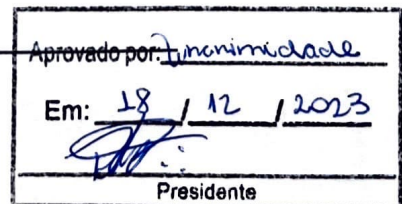 Aprovado por: Unanimidade
Em: 18 / 12 / 2023
Presidente